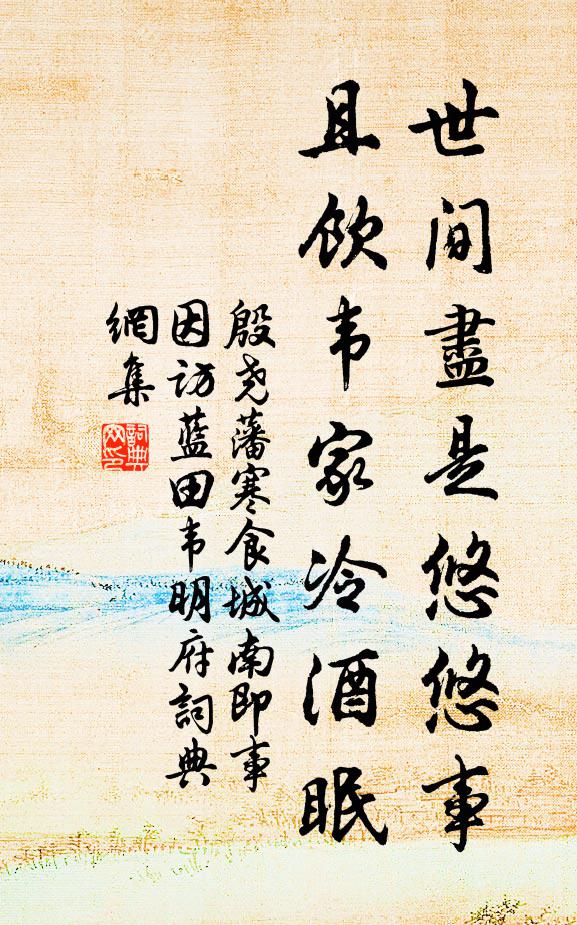 世间盡是悠悠事
且飲韦家冷酒眠
殷尧藩寒食城南即事
因访藍田韦明府詞典
網集
詞典